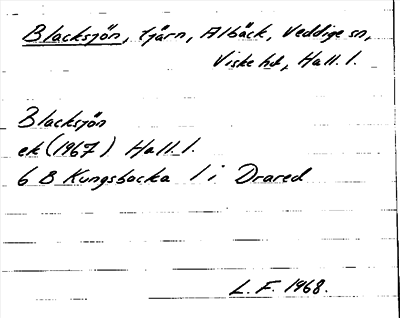 Blacksjön, tjärn, Albäck, Veddige sn,
Viske hd, Hall. l.
Blacksjön
ek (1967) Hall. l.
6 B Kungsbacka 1 i Drared
L. F. 1968.